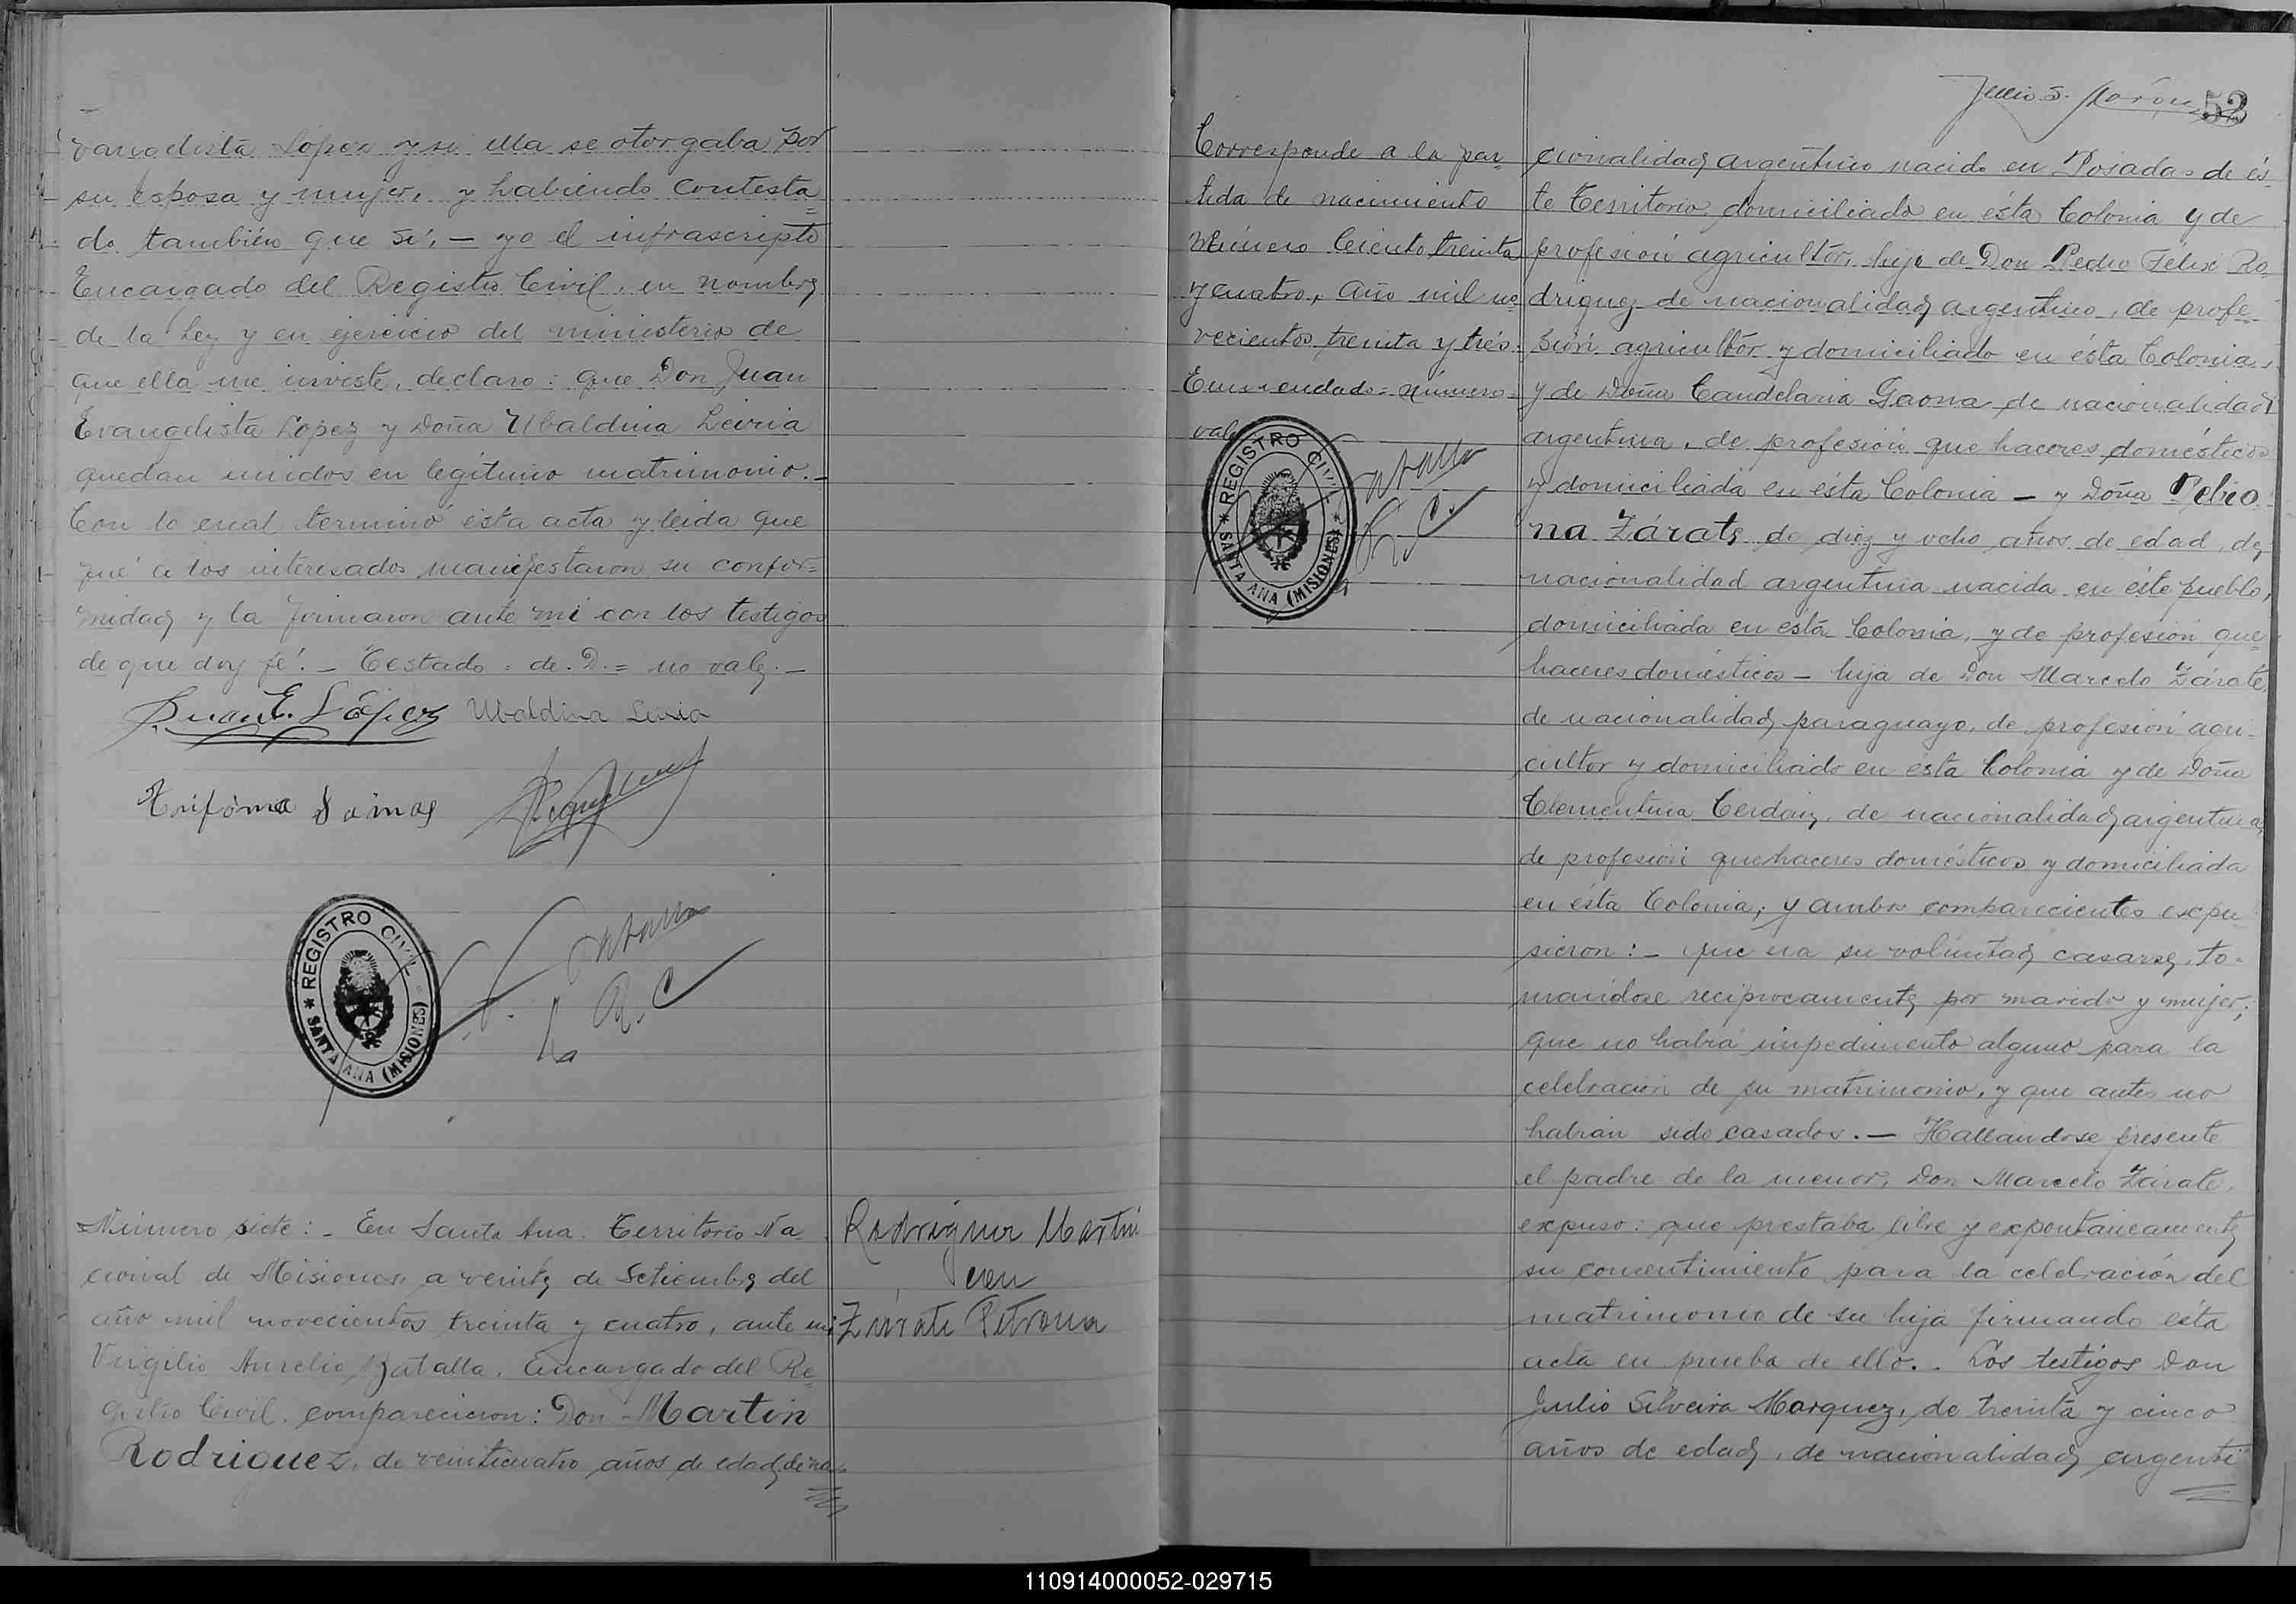 vangelista López y si ella se otorgaba por
su esposa y mujer, y habiendo contesta=
do también que sí, — yo el infrascripto
Encargado del Registro Civil, en nombre
de la Ley y en ejercicio del ministerio de
que ella me inviste, declaro: que Don Juan
Evangelista López y Doña Ubaldina Leiria
quedan unidos en legítimo matrimonio.—
Con lo cual terminó ésta acta y leida que
fué a los interesados manifestaron su confor=
midad y la firmaron ante mí con los testigos
de que doy fé. — Testado = de. D. = no vale. —
Juan E. López Ubaldina Leiria
REGISTRO CIVIL
SANTA ANA (MISIONES)
Número siete: — En Santa Ana. Territorio Na
cional de Misiones, a veinte de Setiembre del
año mil novecientos treinta y cuatro, ante mí
Virgilio Aurelio Batalla, Encargado del Re
gistro Civil, comparecieron: Don Martin
Rodriguez, de veinticuatro años de edad, de na
Rodriguez Martin
con
Zarate Petrona
52
Corresponde a la par
tida de nacimiento
Número Ciento treinta
y cuatro, Año mil no
vecientos treinta y trés.
Enmendado = número =
vale
REGISTRO CIVIL
SANTA ANA (MISIONES)
cionalidad argentino nacido en Posadas de és
te Territorio, domiciliado en ésta Colonia y de
profesión agricultór, hijo de Don Pedro Félix Ro
driguez de nacionalidad argentino, de profe=
sión agricultór y domiciliado en ésta Colonia,
y de Doña Candelaria Gaona de nacionalidad
argentina, de profesión que haceres domésticos
y domiciliada en ésta Colonia — y Doña Petro
na Zárate de diez y ocho años de edad, de
nacionalidad argentina nacida en éste pueblo,
domiciliada en ésta Colonia, y de profesión que
haceres domésticos — hija de Don Marcelo Zárate,
de nacionalidad paraguayo, de profesión agri-
cultor y domiciliado en ésta Colonia y de Doña
Clementina Cerdan, de nacionalidad argentina,
de profesión quehaceres domésticos y domiciliada
en ésta Colonia; y ambos comparecientes expu
sieron: — que era su voluntad casarse, to=
mandose reciprocamente por marido y mujer;
que no habia impedimento alguno para la
celebración de su matrimonio, y que antes no
habian sido casados. — Hallandose presente
el padre de la menor, Don Marcelo Zárate,
expuso: que prestaba libre y expontaneamente
su concentimiento para la celebración del
matrimonio de su hija firmando ésta
acta en prueba de ello. . Los testigos Don
Julio Silveira Marquez, de treinta y cinco
años de edad, de nacionalidad argenti
110914000052-029715